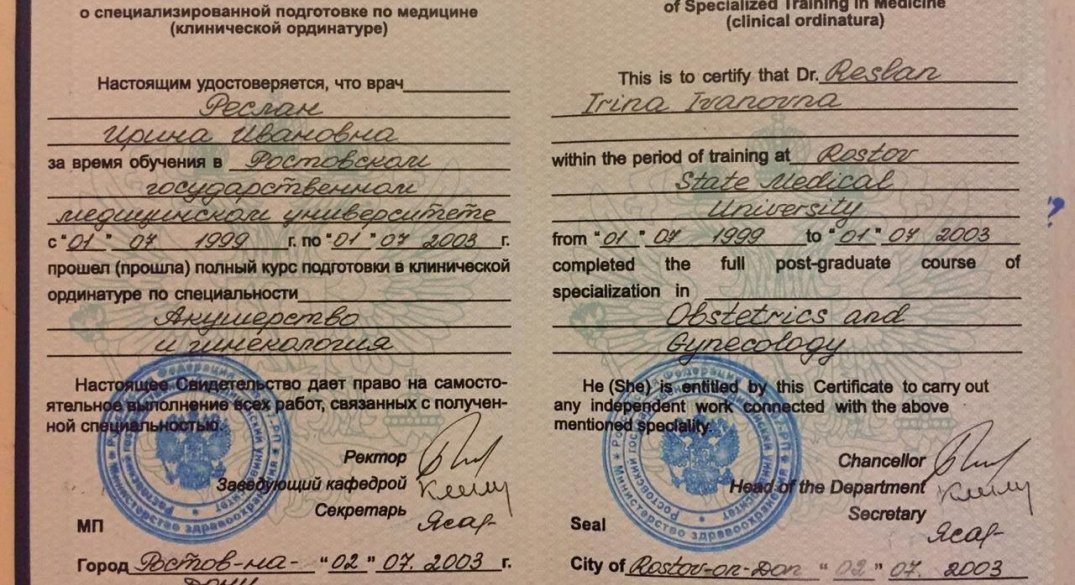 о специализированной подготовке по медицине
(клинической ординатуре)
Настоящим удостоверяется, что врач
Реслан
Ирина Ивановна
за время обучения в Ростовском
государственном
медицинском университете
с "01" 07 1999 г. по "01" 07 2003 г.
прошел (прошла) полный курс подготовки в клинической
ординатуре по специальности
Акушерство
и гинекология
Настоящее Свидетельство дает право на самосто-
ятельное выполнение всех работ, связанных с получен-
ной специальностью.
Ректор
Заведующий кафедрой
Секретарь
МП
Город Ростов-на- "02" 07. 2003 г.
Дону
of Specialized Training in Medicine
(clinical ordinatura)
This is to certify that Dr. Reslan
Irina Ivanovna
within the period of training at Rostov
State Medical
University
from "01" 07 1999 to "01" 07 2003
completed the full post-graduate course of
specialization in
Obstetrics and
Gynecology
He (She) is entitled by this Certificate to carry out
any independent work connected with the above
mentioned speciality.
Chancellor
Head of the Department
Secretary
Seal
City of Rostov-on-Don "02" 07. 2003